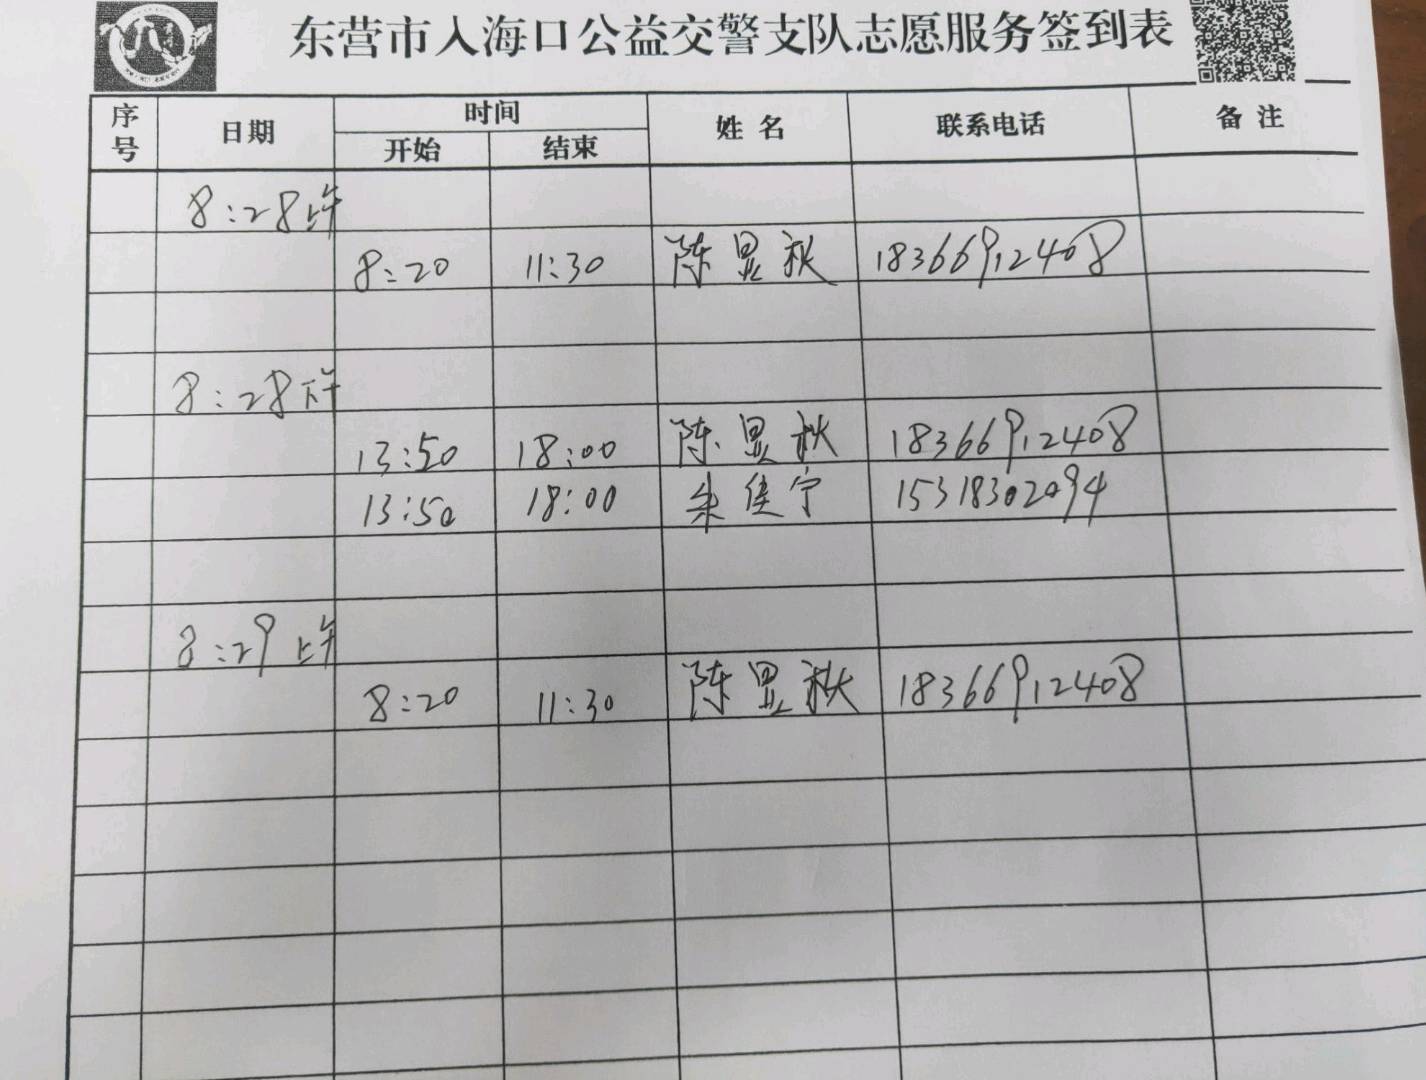 东营市入海口公益交警支队志愿服务签到表
序号 日期 时间 姓名 联系电话 备注
开始 结束
8:28上午
8:20 11:30 陈昱秋 18366912408
8:28下午
13:50 18:00 陈昱秋 18366912408
13:50 18:00 朱佳宁 15318302094
8:29上午
8:20 11:30 陈昱秋 18366912408